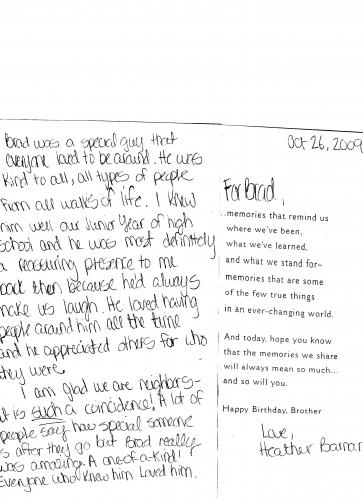 Brad was a special guy that
everyone loved to be around. He was
kind to all, all types of people
from all walks of life. I knew
him well our Junior Year of high
school and he was most definitely
a reassuring presence to me
back then because he'd always
make us laugh. He loved having
people around him all the time
and he appreciated others for who
they were.
I am glad we are neighbors-
it is such a coincidence! A lot of
people say how special someone
is after they go but Brad really
was amazing. A one-of-a-kind!
Everyone who knew him loved him.
Oct 26, 2009
For Brad,
...memories that remind us
where we've been,
what we've learned,
and what we stand for–
memories that are some
of the few true things
in an ever-changing world.
And today, hope you know
that the memories we share
will always mean so much...
and so will you.
Happy Birthday, Brother
Love,
Heather